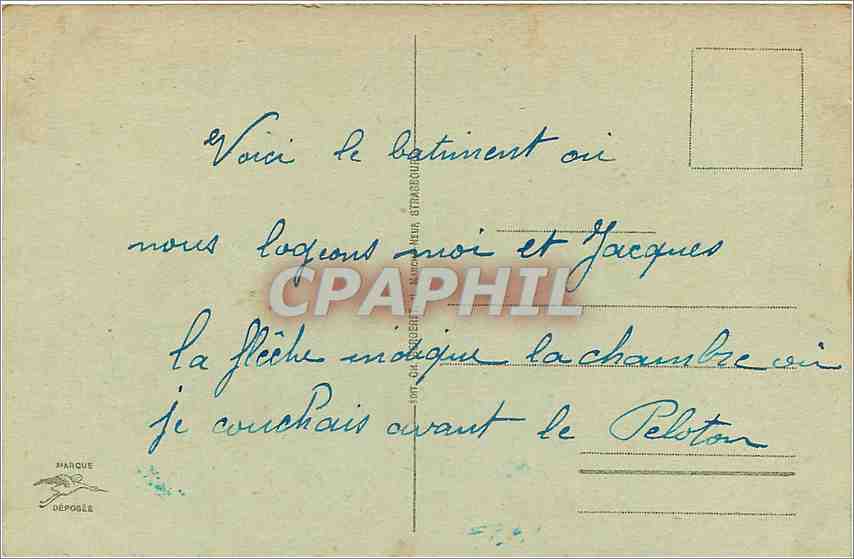 Voici le batiment ou
nous logeons moi et Jacques
CPAPHIL
la flêche indique la chambre ou
je couchais avant le Peloton
MARQUE
DÉPOSÉE
EDIT. CH. BERGERET MARCHÉ NEUF STRASBOURG